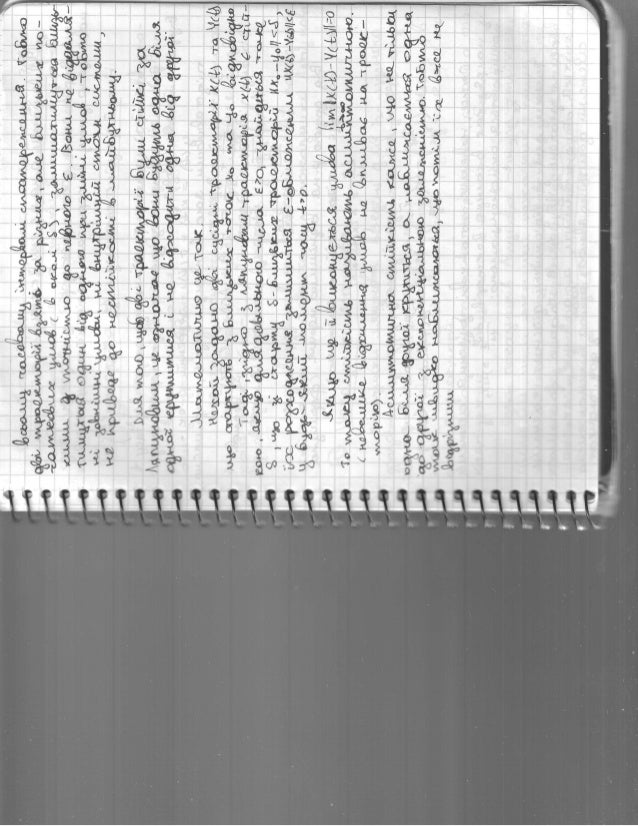 всьому часовому інтервалі спостереження. Тобто
дві траекторіі взяті за різних, але близьких по-
чаткових умов (в околі δ), залишатимуться близь-
кими з точністю до певного ε. Вони не віддаля-
тимуться одна від одноі при зміні умов тобто
ні зовнішні умови, ні внутрішній стан системи,
не приведе до нестійкості в майбутньому.
Для того, щоб дві траекторіі були стійкі за
Ляпуновим, це означає що вони будуть одна біля
одноі крутитися і не відходити одна від другоі
Математично це так
Нехай задано дві сусідні траекторіі x(t) та y(t)
що стартують з близьких точок x₀ та y₀ відповідно
Тоді, згідно з Ляпуновим траекторія x(t) є стій-
кою, якщо для довільного числа ε>0, знайдеться таке
δ, що із старту δ-близьких траекторій ||x₀-y₀||<δ,
іх розходження залишиться ε-обмеженим ||x(t)-y(t)||<ε
у будь який момент часу t>0.
Якщо ще й виконується умова lim||x(t)-y(t)||=0
t→∞
то таку стійкість називають асимптотичною.
(невелике відхилення умов не впливає на траек-
торію).
Асимптотична стійкість каже, що не тільки
одна біля другоі крутиться, а наближається одна
до другоі з експоненціальною залежністю. Тобто
так швидко наближаються, що потім іх вже не
відрізниш